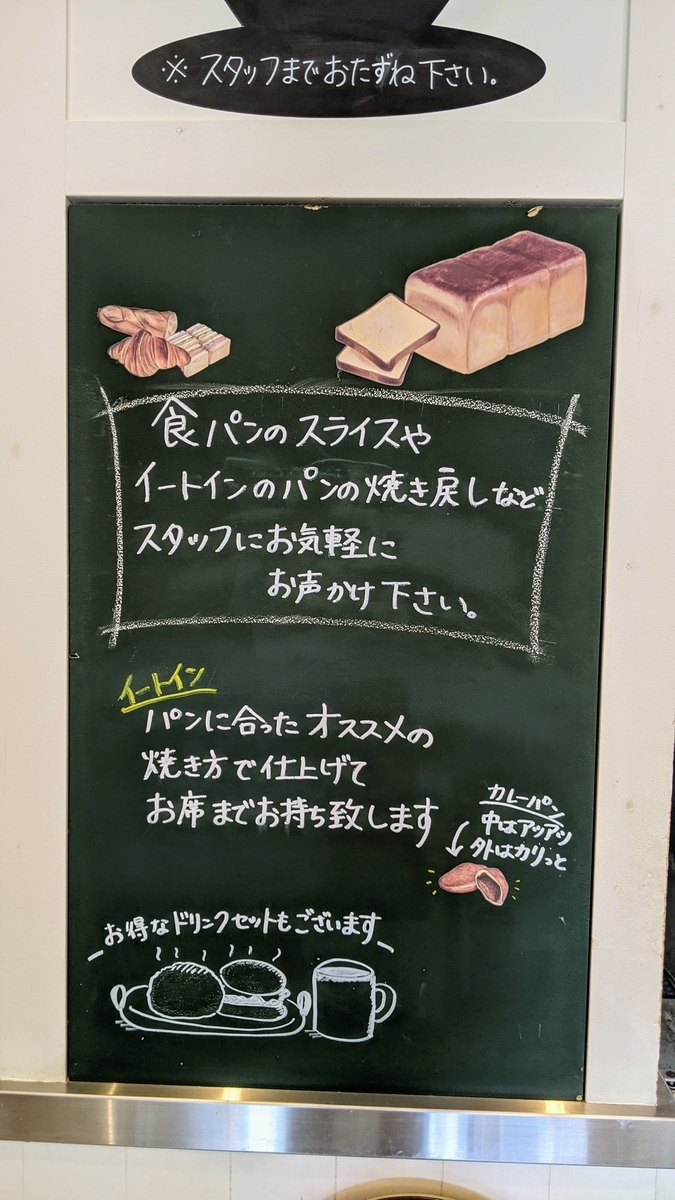 ※ スタッフまでおたずね下さい。
食パンのスライスや
イートインのパンの焼き戻しなど
スタッフにお気軽に
お声かけ下さい。
イートイン
パンに合ったオススメの
焼き方で仕上げて
お席までお持ち致します
カレーパン
中はアツアツ
外はカリっと
お得なドリンクセットもございます